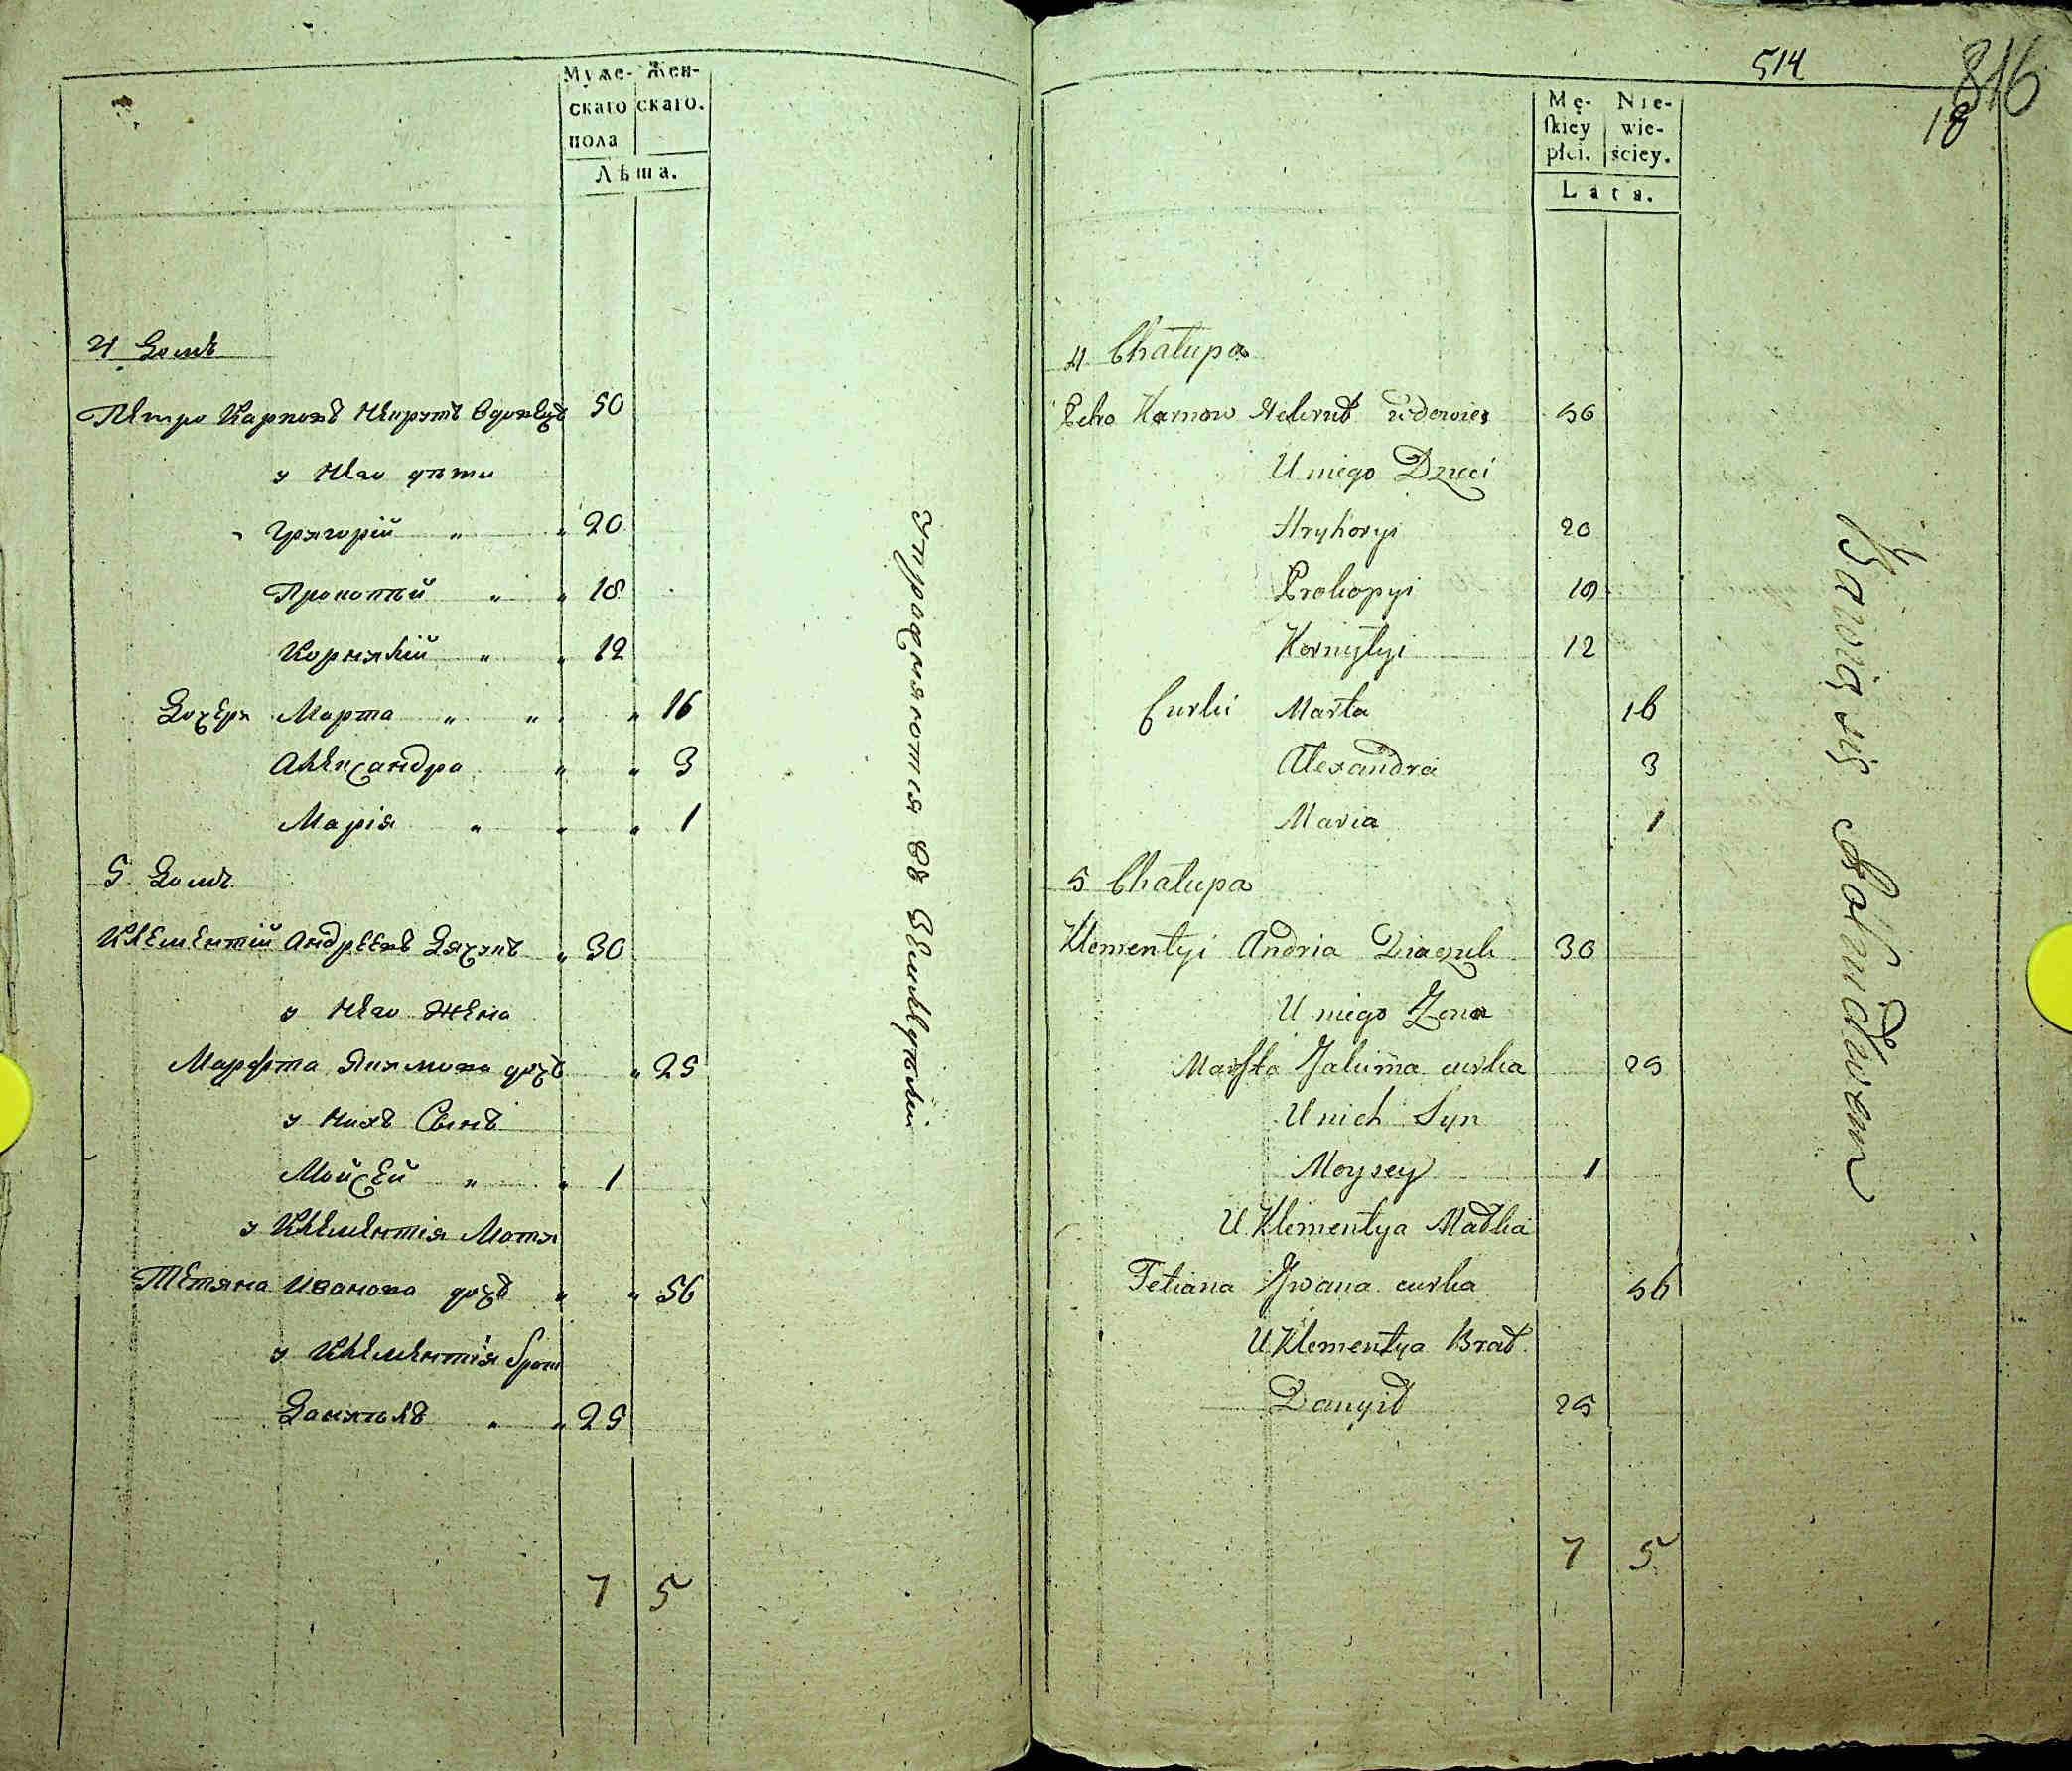 Муже- Жен-
скаго скаго.
пола
Лѣта.
4 Домъ
Петро Карповъ Некрутъ вдовецъ 50
у Него дети
Григорій " " 20
Прокопий " " 18
Корнилий " " 12
Дочери Марта " " " 16
Александра " " 3
Марія " " " 1
5 Домъ
Клементий Андреевъ " 30
у Него Жена
Марфта Якимова дочь " 25
у Нихъ Сынъ
Мойсей " " 1
у Клементия Мати
Тетяна Иванова дочь " " 56
у Клементія брат
Даниилъ " " 25
7 5
Упражняются въ Земледелии
514
816
18
Mę- Nie-
skiey wie-
płci. ściey.
Lata.
4 Chałupa
Petro Karpow Nekrut Wdowiec 50
U niego Dzieci
Hryhoryi 20
Prokopyi 18
Kornyłyi 12
Curki Marta 16
Alexandra 3
Maria 1
5 Chałupa
Klementyi Andria 30
U niego Żona
Marfta Jakima curka 25
U nich Syn
Moysey 1
U Klementya Matka
Tetiana Jwana curka 56
U Klementya Brat
Danyił 25
7 5
Bawią się